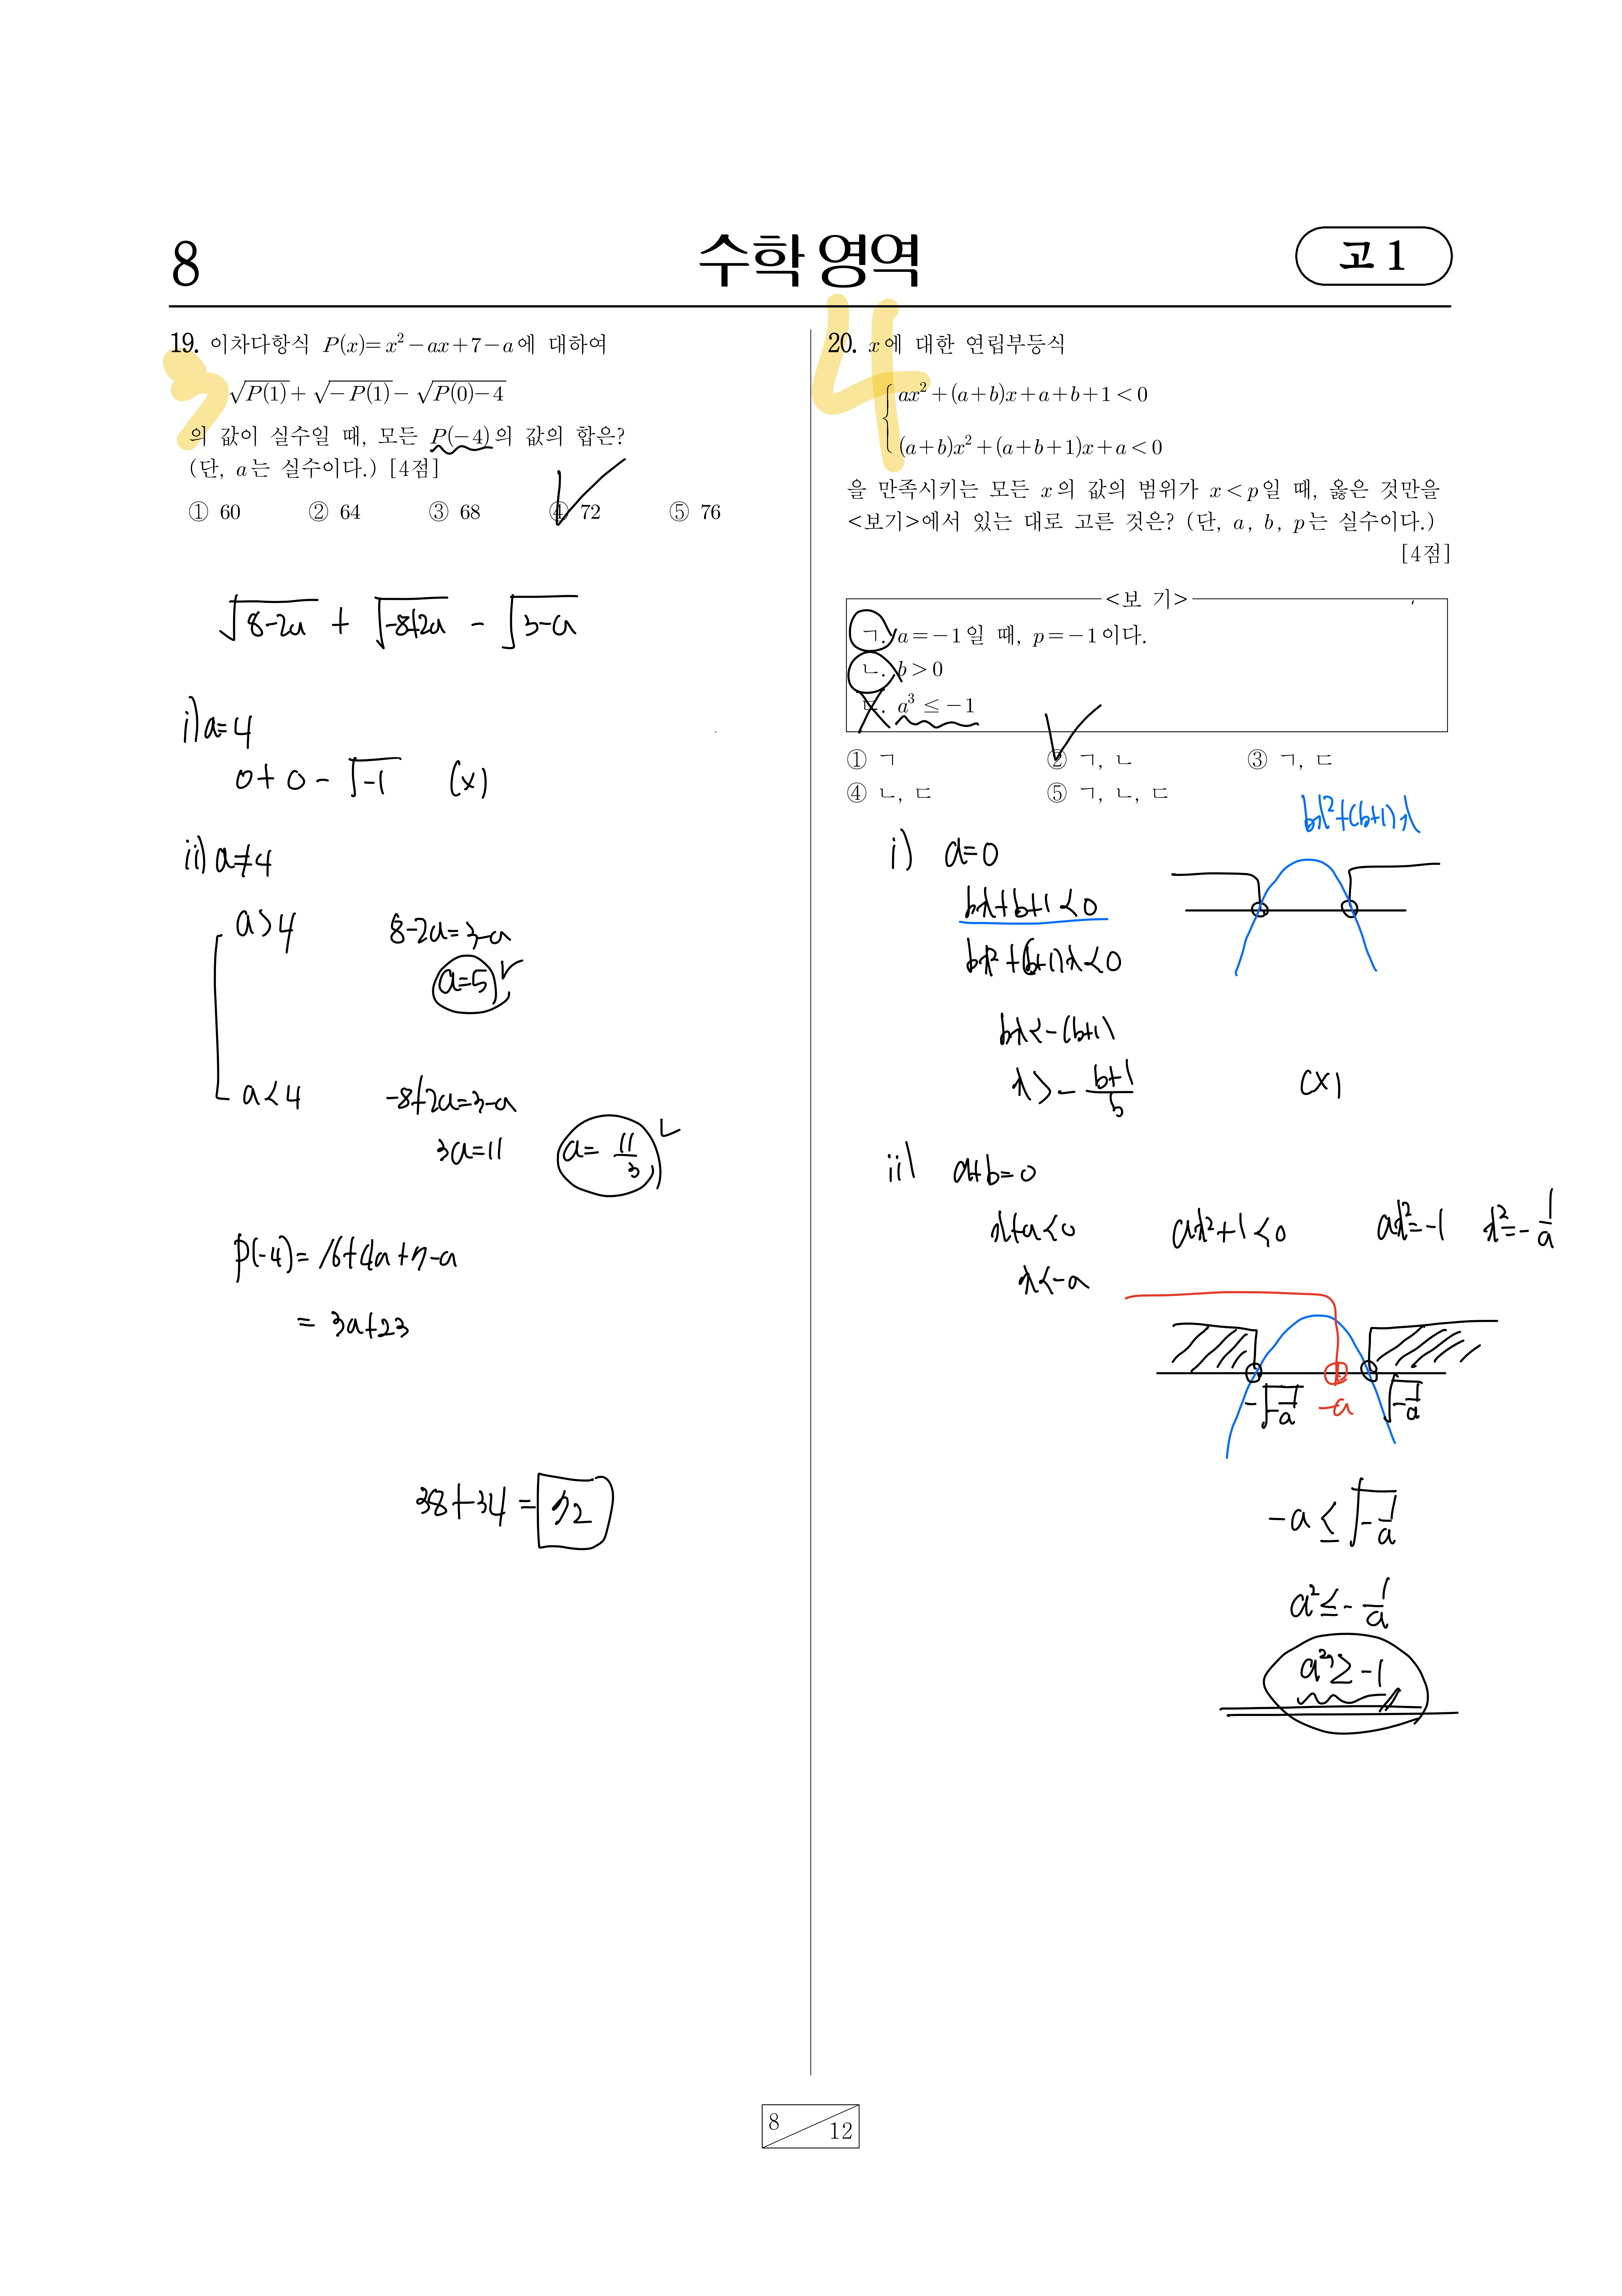 8
수학 영역
고 1
19. 이차다항식 P(x)=x²−ax+7−a에 대하여
√P(1) + √−P(1) − √P(0)−4
의 값이 실수일 때, 모든 P(−4)의 값의 합은?
(단, a는 실수이다.) [4점]
① 60 ② 64 ③ 68 ④ 72 ⑤ 76
3
√8-2a + √-8+2a - √3-a
i) a=4
0+0-√-1 (×)
ii) a≠4
a>4 8-2a=3-a
a=5
a<4 -8+2a=3-a
3a=11 a=11/3
P(-4)=16+4a+7-a
=3a+23
38+34=72
4
20. x에 대한 연립부등식
ax²+(a+b)x+a+b+1<0
(a+b)x²+(a+b+1)x+a<0
을 만족시키는 모든 x의 값의 범위가 x<p일 때, 옳은 것만을
<보기>에서 있는 대로 고른 것은? (단, a, b, p는 실수이다.)
[4점]
<보 기>
ㄱ. a=−1일 때, p=−1이다.
ㄴ. b>0
ㄷ. a³≤−1
① ㄱ ② ㄱ, ㄴ ③ ㄱ, ㄷ
④ ㄴ, ㄷ ⑤ ㄱ, ㄴ, ㄷ
bx²+(b+1)x
i) a=0
bx+b+1<0
bx²+(b+1)x<0
bx<-(b+1)
x>-(b+1)/b (×)
ii) a+b=0
x+a<0 ax²+1<0 ax²=-1 x²=-1/a
x<-a
-√-1/a -a √-1/a
-a≤√-1/a
a²≤-1/a
a³≥-1
8
12